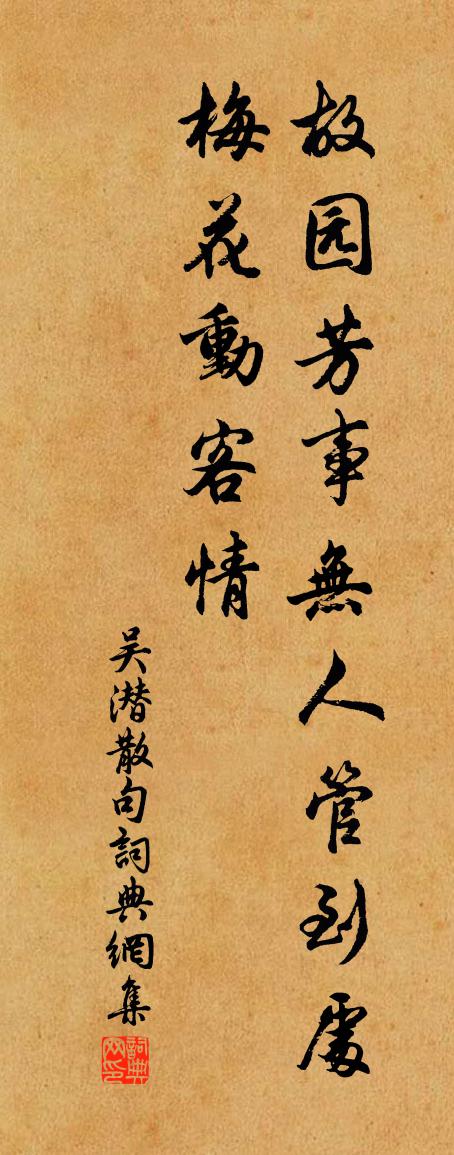 故园芳事無人管到處
梅花動客情
吴潜散句詞典網集
詞典网印